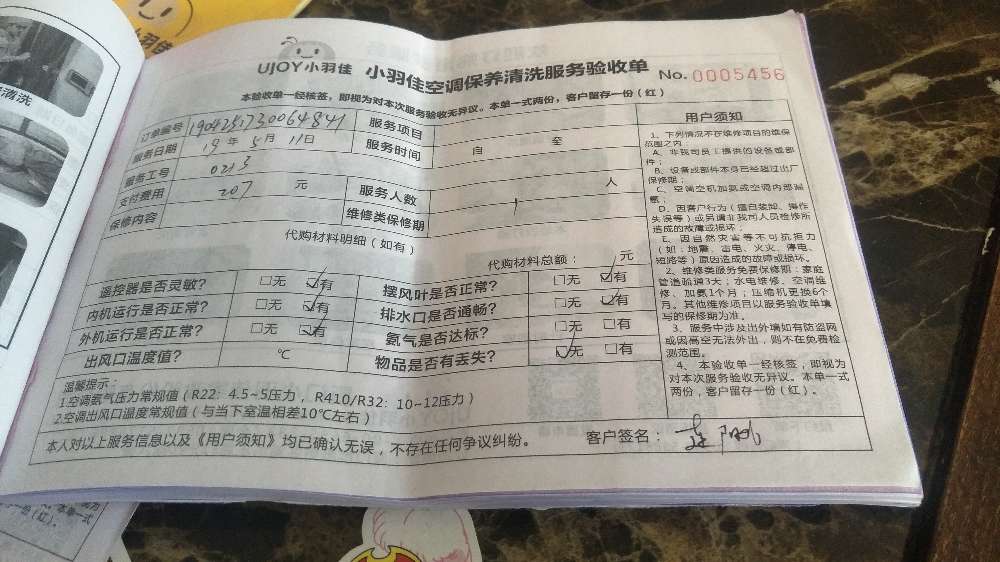 小羽佳
清洗
UJOY小羽佳 小羽佳空调保养清洗服务验收单 No.0005456
本验收单一经核签，即视为对本次服务验收无异议。本单一式两份，客户留存一份（红）
订单编号 19042517300 64841 服务项目
服务日期 19年5月11日 服务时间 自 至
服务工号 0213
支付费用 207 元 服务人数 1 人
保修内容 维修类保修期
代购材料明细（如有）
代购材料总额： 元
遥控器是否灵敏？ □无 ☑有 摆风叶是否正常？ □无 ☑有
内机运行是否正常？ □无 ☑有 排水口是否通畅？ □无 ☑有
外机运行是否正常？ □无 ☑有 氨气是否达标？ □无 □有
出风口温度值？ ℃ 物品是否有丢失？ ☑无 □有
温馨提示：
1.空调氨气压力常规值（R22：4.5~5压力，R410/R32：10~12压力）
2.空调出风口温度常规值（与当下室温相差10℃左右）
本人对以上服务信息以及《用户须知》均已确认无误，不存在任何争议纠纷。 客户签名：
用户须知
1、下列情况不在维修项目的维保
范围之内
A、非我司员工提供的设备或部
件；
B、设备或部件本身已经超过出厂
保修期；
C、空调空机加氨或空调内部漏
氨；
D、因客户行为（擅自装卸、操作
失误等）或另请非我司人员检修所
造成的故障或损坏；
E、因自然灾害等不可抗拒力
（如：地震、雷电、火灾、停电、
短路等）原因造成的故障或损坏。
2、维修类服务免费保修期：家庭
管道疏通3天；水电维修、空调维
修、加氨1个月；压缩机更换6个
月，其他维修项目以服务验收单填
写的保修期为准。
3、服务中涉及出外墙如有防盗网
或因高空无法外出，则不在免费检
测范围。
4、本验收单一经核签，即视为
对本次服务验收无异议。本单一式
两份，客户留存一份（红）。